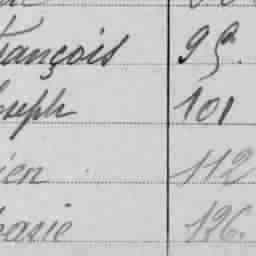 François 99.
Joseph 101
ien 112
pasie 126.